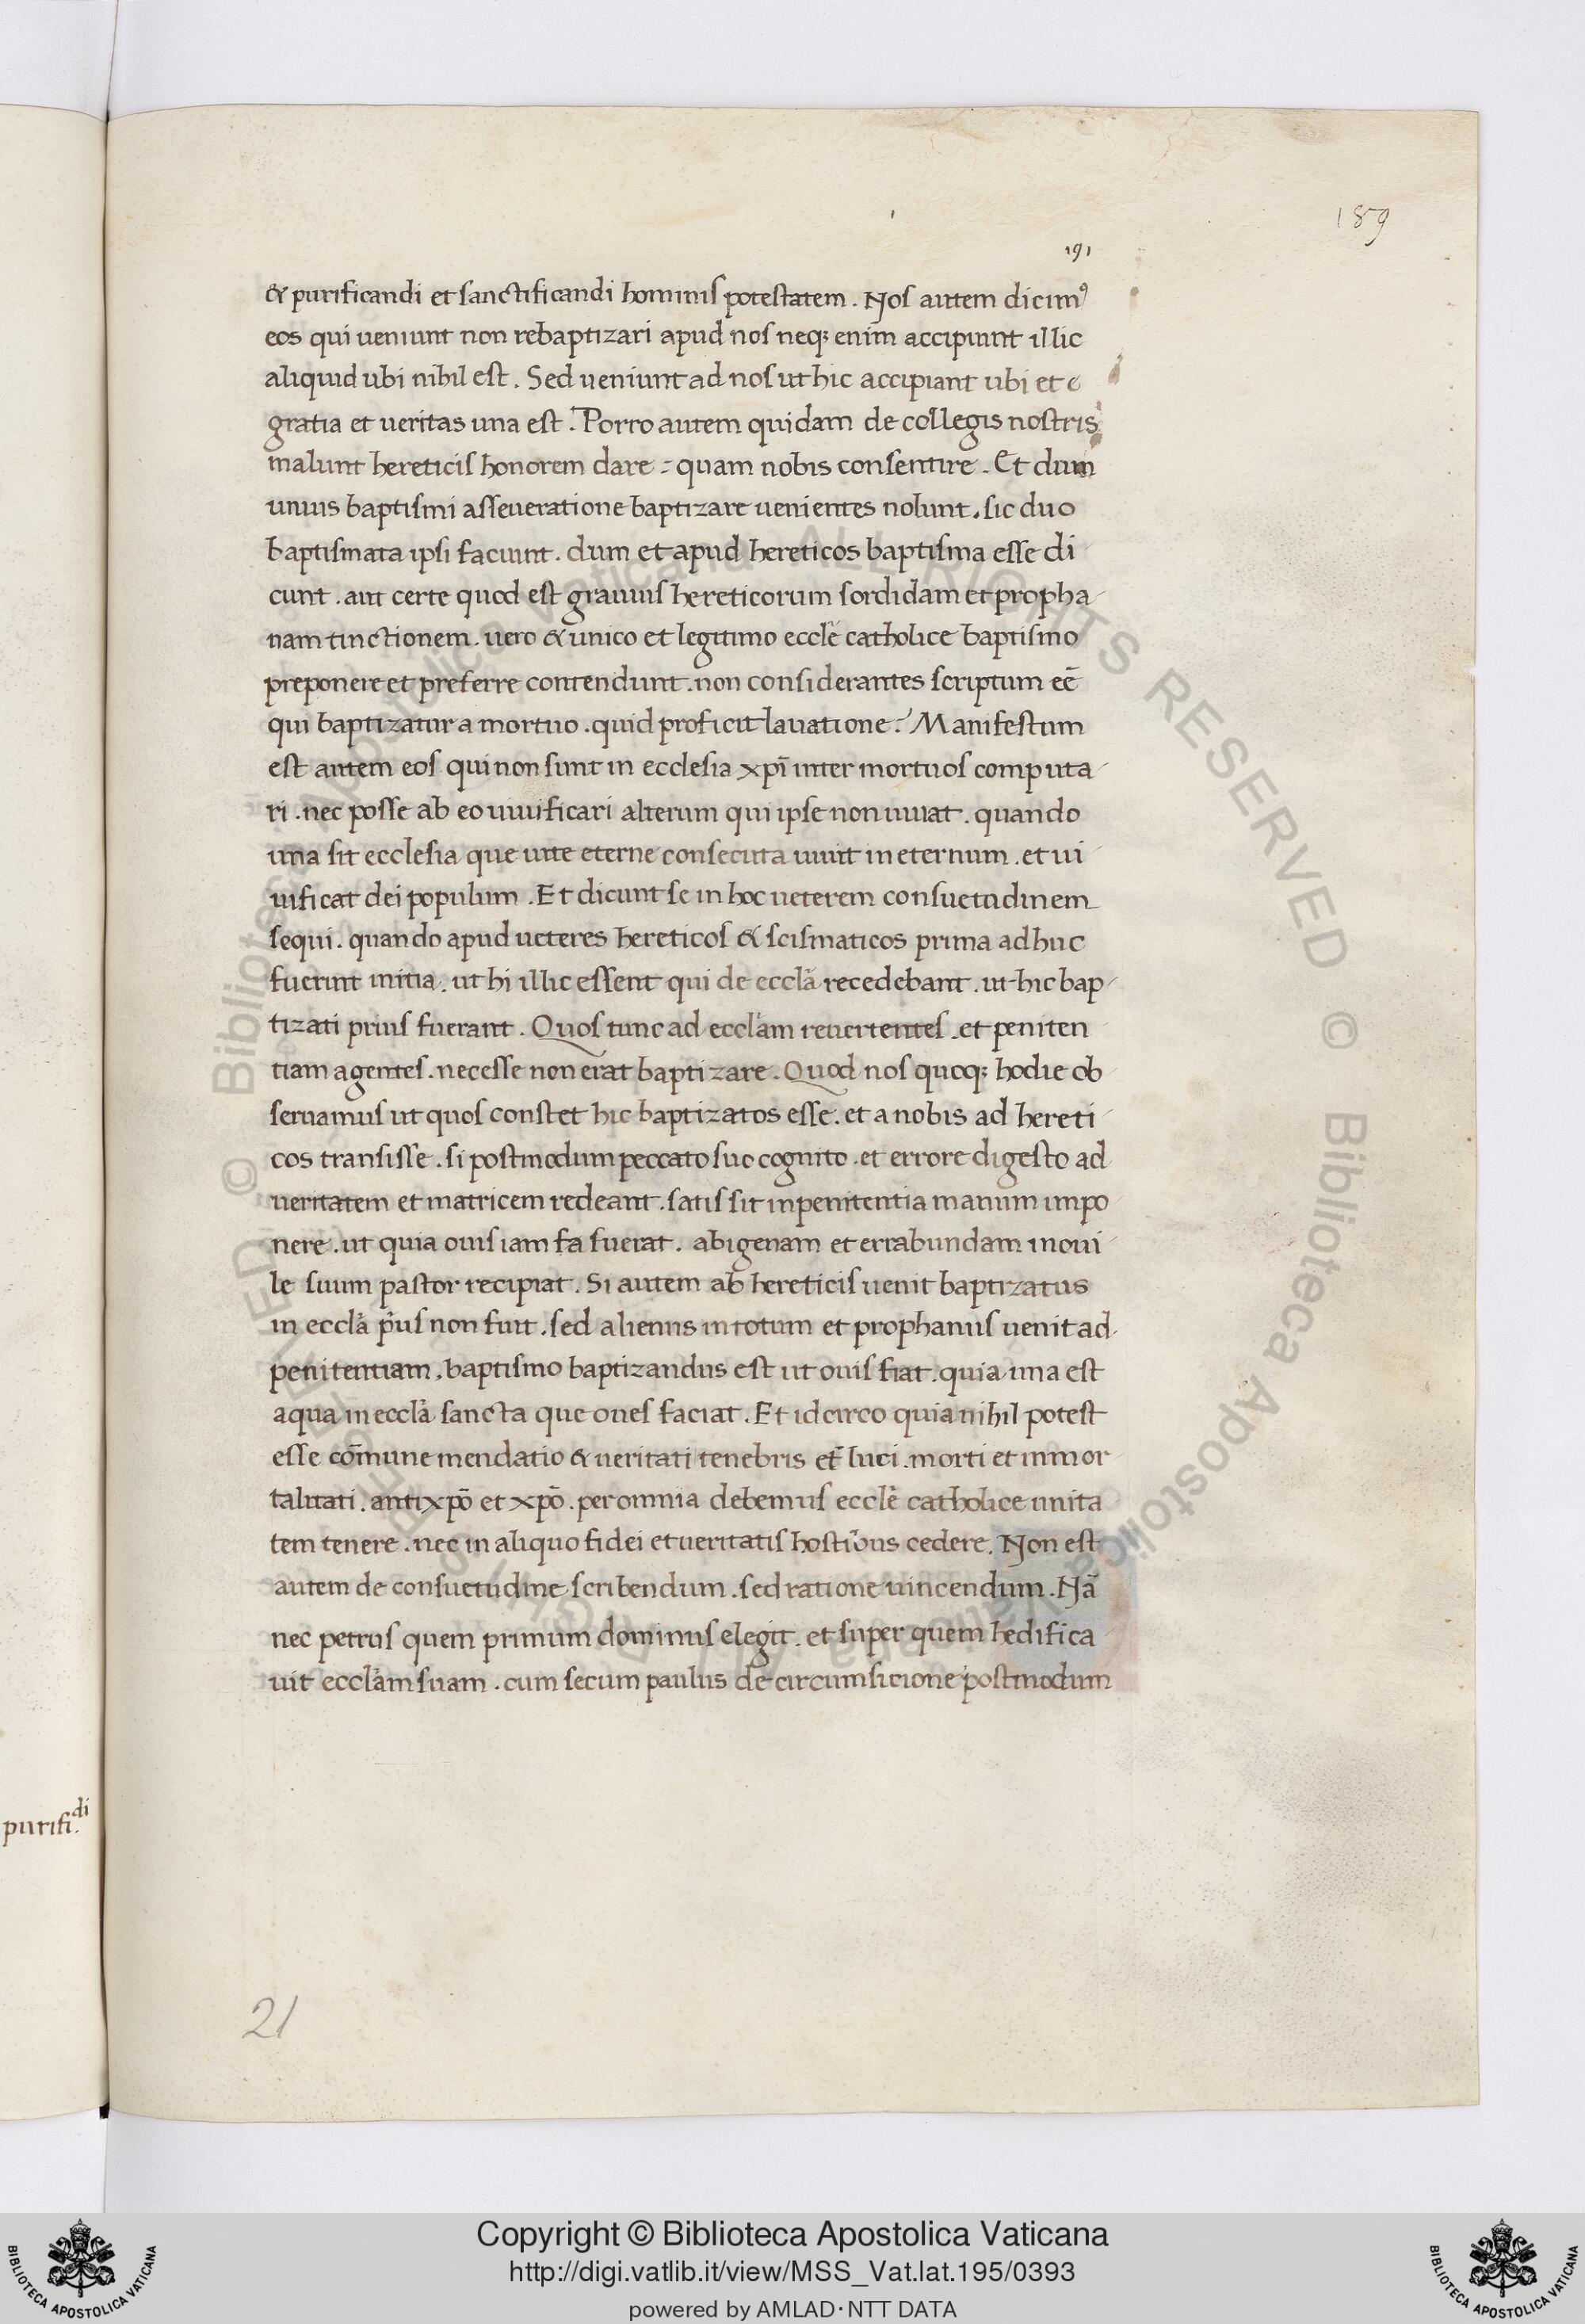 189
191
& purificandi et sanctificandi hominis potestatem. Nos autem dicim⁹
eos qui ueniunt non rebaptizari apud nos neq; enim accipiunt illic
aliquid ubi nihil est. Sed ueniunt ad nos ut hic accipiant ubi et e
gratia et ueritas una est. Porro autem quidam de collegis nostris
malunt hereticis honorem dare quam nobis consentire. Et dum
unius baptismi asseueratione baptizare uenientes nolunt. sic duo
baptismata ipsi faciunt. dum et apud hereticos baptisma esse di
cunt. aut certe quod est grauius hereticorum sordidam et propha
nam tinctionem. uero & unico et legitimo eccle catholice baptismo
preponere et preferre contendunt. non considerantes scriptum eē
qui baptizatur a mortuo. quid proficit lauatione? Manifestum
est autem eos qui non sunt in ecclesia xp̄i inter mortuos computa
ri. nec posse ab eo uiuificari alterum qui ipse non uiuat. quando
una sit ecclesia que uite eterne consecuta uiuit in eternum. et ui
uificat dei populum. Et dicunt se in hoc ueterem consuetudinem
sequi. quando apud ueteres hereticos & scismaticos prima adhuc
fuerint initia. ut hi illic essent qui de eccla recedebant. ut hic bap
tizati prius fuerant. Quos tunc ad ecclam reuertentes. et peniten
tiam agentes. necesse non erat baptizare. Quod nos quoq; hodie ob
seruamus ut quos constet hic baptizatos esse. et a nobis ad hereti
cos transisse. si postmodum peccato suo cognito. et errore digesto ad
ueritatem et matricem redeant. satis sit in penitentia manum impo
nere. ut quia ouis iam fa fuerat. abigenam et errabundam in oui
le suum pastor recipiat. Si autem ab hereticis uenit baptizatus
in eccla p̄us non fuit. sed alienus in totum et prophanus uenit ad
penitentiam, baptismo baptizandus est ut ouis fiat. quia una est
aqua in eccla sancta que oues faciat. Et idcirco quia nihil potest
esse cōmune mendatio & ueritati tenebris et luci. morti et inmor
talitati. antixpō et xpō. per omnia debemus eccle catholice unita
tem tenere. nec in aliquo fidei et ueritatis hostibus cedere. Non est
autem de consuetudine scribendum. sed ratione uincendum. Nā
nec petrus quem primum dominus elegit. et super quem hedifica
uit ecclam suam. cum secum paulus de circumsicione postmodum
purifi.di
21
© Biblioteca Apostolica Vaticana ALL RIGHTS RESERVED
© Biblioteca Apostolica Vaticana ALL RIGHTS RESERVED
Copyright © Biblioteca Apostolica Vaticana
http://digi.vatlib.it/view/MSS_Vat.lat.195/0393
powered by AMLAD·NTT DATA
BIBLIOTECA APOSTOLICA VATICANA
BIBLIOTECA APOSTOLICA VATICANA